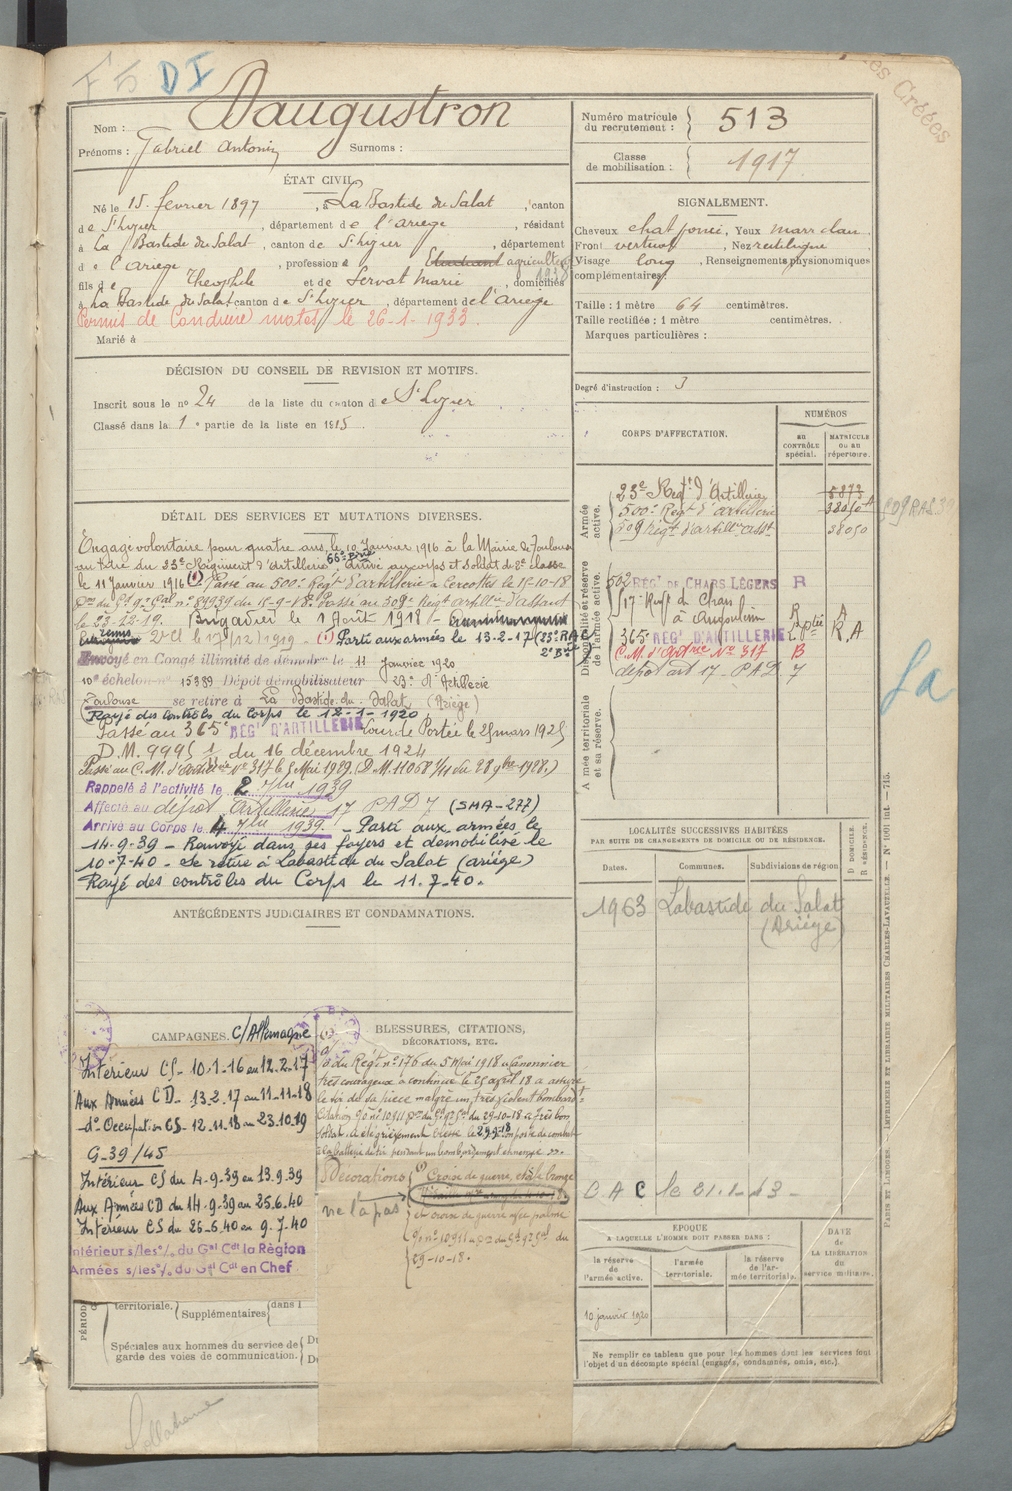 F5 DI
Daugustron
Nom :
Prénoms : Gabriel Antonin Surnoms :
ÉTAT CIVIL.
Né le 15 février 1897, à La Bastide du Salat, canton
de St Lizier, département de l'Ariège, résidant
à La Bastide du Salat, canton de St Lizier, département
de l'Ariège, profession d Etudiant agriculteur 1938
fils de Théophile et de Servat Marie, domiciliés
à La Bastide du Salat canton de St Lizier, département de l'Ariège
Permis de Conduire le 26-1-1933.
Marié à
DÉCISION DU CONSEIL DE REVISION ET MOTIFS.
Inscrit sous le no 24 de la liste du canton de St Lizier
Classé dans la 1e partie de la liste en 1915.
DÉTAIL DES SERVICES ET MUTATIONS DIVERSES.
Engagé volontaire pour quatre ans, le 10 Janvier 1916 à la Mairie de Toulouse
au titre du 23e Régiment d'Artillerie, 66e Bie Arrivé au corps et soldat de 2e classe
le 11 Janvier 1916 (1) Passé au 500e Régt d'artillerie à le 15-10-18
no 89939 du 15-9-18. Passé au 309e Régt artillie d'assaut
le 23-12-19. Brigadier le 1 Août 1918 -
remis 2e Cl le 17/12/1919 - (1) Parti aux armées le 13-2-17 (23e RAC
2e Bie)
Envoyé en Congé illimité de démobon le 11 Janvier 1920
10e échelon no 15389 Dépôt démobilisateur 23e d'Artillerie
Toulouse se retire à La Bastide du Salat (Ariège)
Rayé des contrôles du corps le 12-1-1920
Passé au 365e RÉGt D'ARTILLERIE Lourde Portée le 25 mars 1925
D.M. 9995 1/11 du 16 décembre 1924
Passé au C.M. d'artillerie No 317 le 5 Mai 1929 (D.M. 11068 1/11 du 28 9bre 1928.)
Rappelé à l'activité le 2 7bre 1939
Affecté au dépôt artillerie 17 PAD 7 (SMA-277)
Arrivé au Corps le 4 7bre 1939. - Parti aux armées le
14-9-39 - Renvoyé dans ses foyers et démobilisé le
10-7-40 - Se retire à Labastide du Salat (Ariège)
Rayé des contrôles du Corps le 11-7-40.
ANTÉCÉDENTS JUDICIAIRES ET CONDAMNATIONS.
CAMPAGNES. C/Allemagne
Intérieur CS - 10-1-16 au 12-2-17
Aux Armées CD - 13-2-17 au 11-11-18
-do- Occupation CS - 12-11-18 au 23-10-19
G-39/45
Intérieur CS du 4-9-39 au 13.9.39
Aux Armées CD du 14-9-39 au 25-6-40
Intérieur CS du 26-6-40 au 9-7-40
Intérieur s/les o/o du Gal Cdt la Région
Armées s/les o/o du Gal Cdt en Chef
PÉRIOD
territoriale. Supplémentaires dans l
Spéciales aux hommes du service de
garde des voies de communication.
BLESSURES, CITATIONS,
DÉCORATIONS, ETC.
o du Régt no 176 du 5 Mai 1918 "Canonnier
très courageux a continué le 25 avril 18 a assuré
le tir de sa pièce malgré un très violent bombardt"
Citation go no 10911 du 29-10-18 "Très bon
soldat, a été grièvement blessé le 29-9-18 son poste de combat
à la batterie de tir pendant un bombardement ennemi".
Décorations (1) Croix de guerre, étoile bronze
ne l'a pas
et croix de guerre avec palme
go no 10911 du
29-10-18.
Numéro matricule
du recrutement : 513
Classe
de mobilisation : 1917
SIGNALEMENT.
Cheveux chat foncé, Yeux marr clair
Front vertical, Nez rectiligne
Visage long, Renseignements physionomiques
complémentaires :
Taille : 1 mètre 64 centimètres.
Taille rectifiée : 1 mètre centimètres.
Marques particulières :
Degré d'instruction : 3
CORPS D'AFFECTATION.
NUMÉROS
AU CONTRÔLE spécial.
MATRICULE OU AU répertoire.
Armée active.
23e Régt d'Artillerie 5873
500e Régt d'artillerie 38050
509 Régt d'artillie asst 38050
509 RAS 39
Disponibilité et réserve de l'armée active.
502 RÉGt DE CHARS LÉGERS R
517e Régt de Chars
à Angoulême
365 RÉGt D'ARTILLERIE
R.A
C.M. d'Artrie No 317 B
dépôt art 17 PAD 7
Armée territoriale et sa réserve.
LOCALITÉS SUCCESSIVES HABITÉES
PAR SUITE DE CHANGEMENTS DE DOMICILE OU DE RÉSIDENCE.
Dates. Communes. Subdivisions de région D DOMICILE. R RÉSIDENCE.
1963 Labastide du Salat
(Ariège)
C A C le 21-1-43 -
ÉPOQUE
A LAQUELLE L'HOMME DOIT PASSER DANS :
la réserve de l'armée active.
l'armée territoriale.
la réserve de l'armée territoriale.
DATE
de
LA LIBÉRATION
du
service militaire.
10 janvier 1920
Ne remplir ce tableau que pour les hommes dont les services font
l'objet d'un décompte spécial (engagés, condamnés, omis, etc.).
PARIS ET LIMOGES. — IMPRIMERIE ET LIBRAIRIE MILITAIRES CHARLES-LAVAUZELLE. — No 1001 int. — 715.